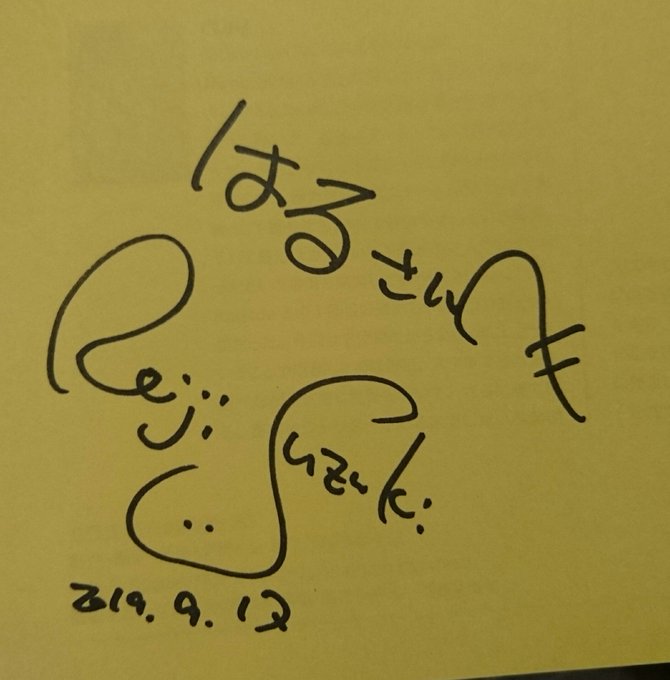 はるさんへ
Reiji
Suzuki
2019.9.12